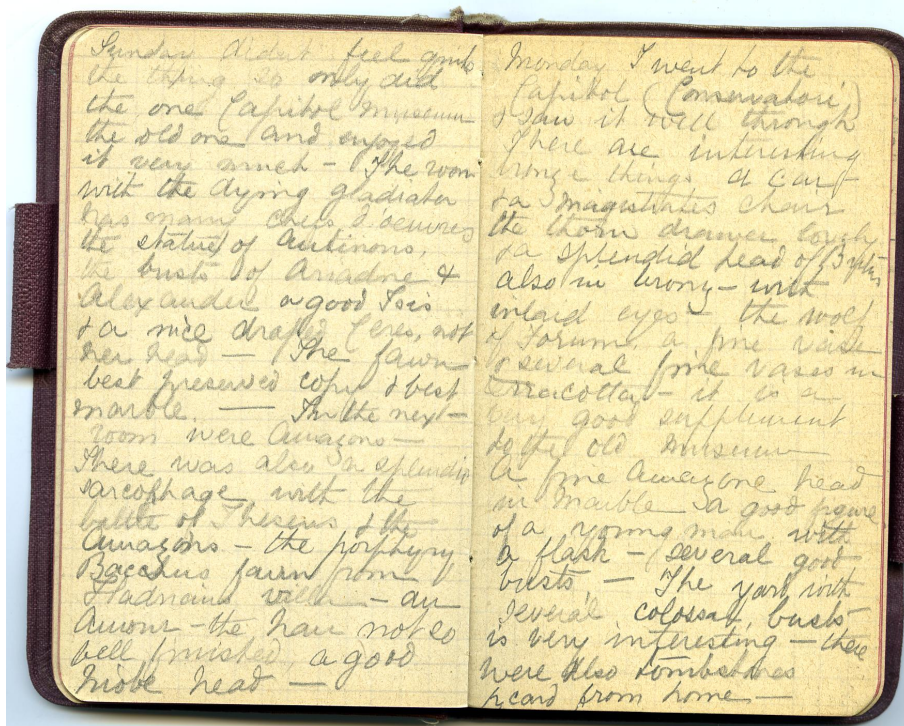 Sunday didnt feel quite
the thing so only did
the one Capitol museum
the old one and enjoyed
it very much – The room
with the dying gladiator
has many chefs d'oeuvres
the statue of Antinous,
the busts of Ariadne &
Alexander a good Isis
& a nice draped Ceres, not
her head – The fawn
best preserved copy & best
marble. — In the next
room were Amazons –
There was also a splendid
sarcophage with the
battle of Theseus & the
Amazons – the porphyry
Bacchus fawn from
Hadrians villa – an
Amour – the hair not so
well finished, a good
Niobe head —
Monday I went to the
Capitol (Conservatori)
& saw it well through
There are interesting
bronze things a car
& a magistrates chair
the thorn drawer lovely
& a splendid head of
also in bronz – with
inlaid eyes – the wolf
of Forum, a fine vase
& several fine vases in
terracotta – it is a
very good supplement
to the old museum
A fine Amazone head
in marble a good figure
of a young man with
a flask – several good
busts — The yard with
several colossal busts,
is very interesting – there
were also tombstones
p, card from home —